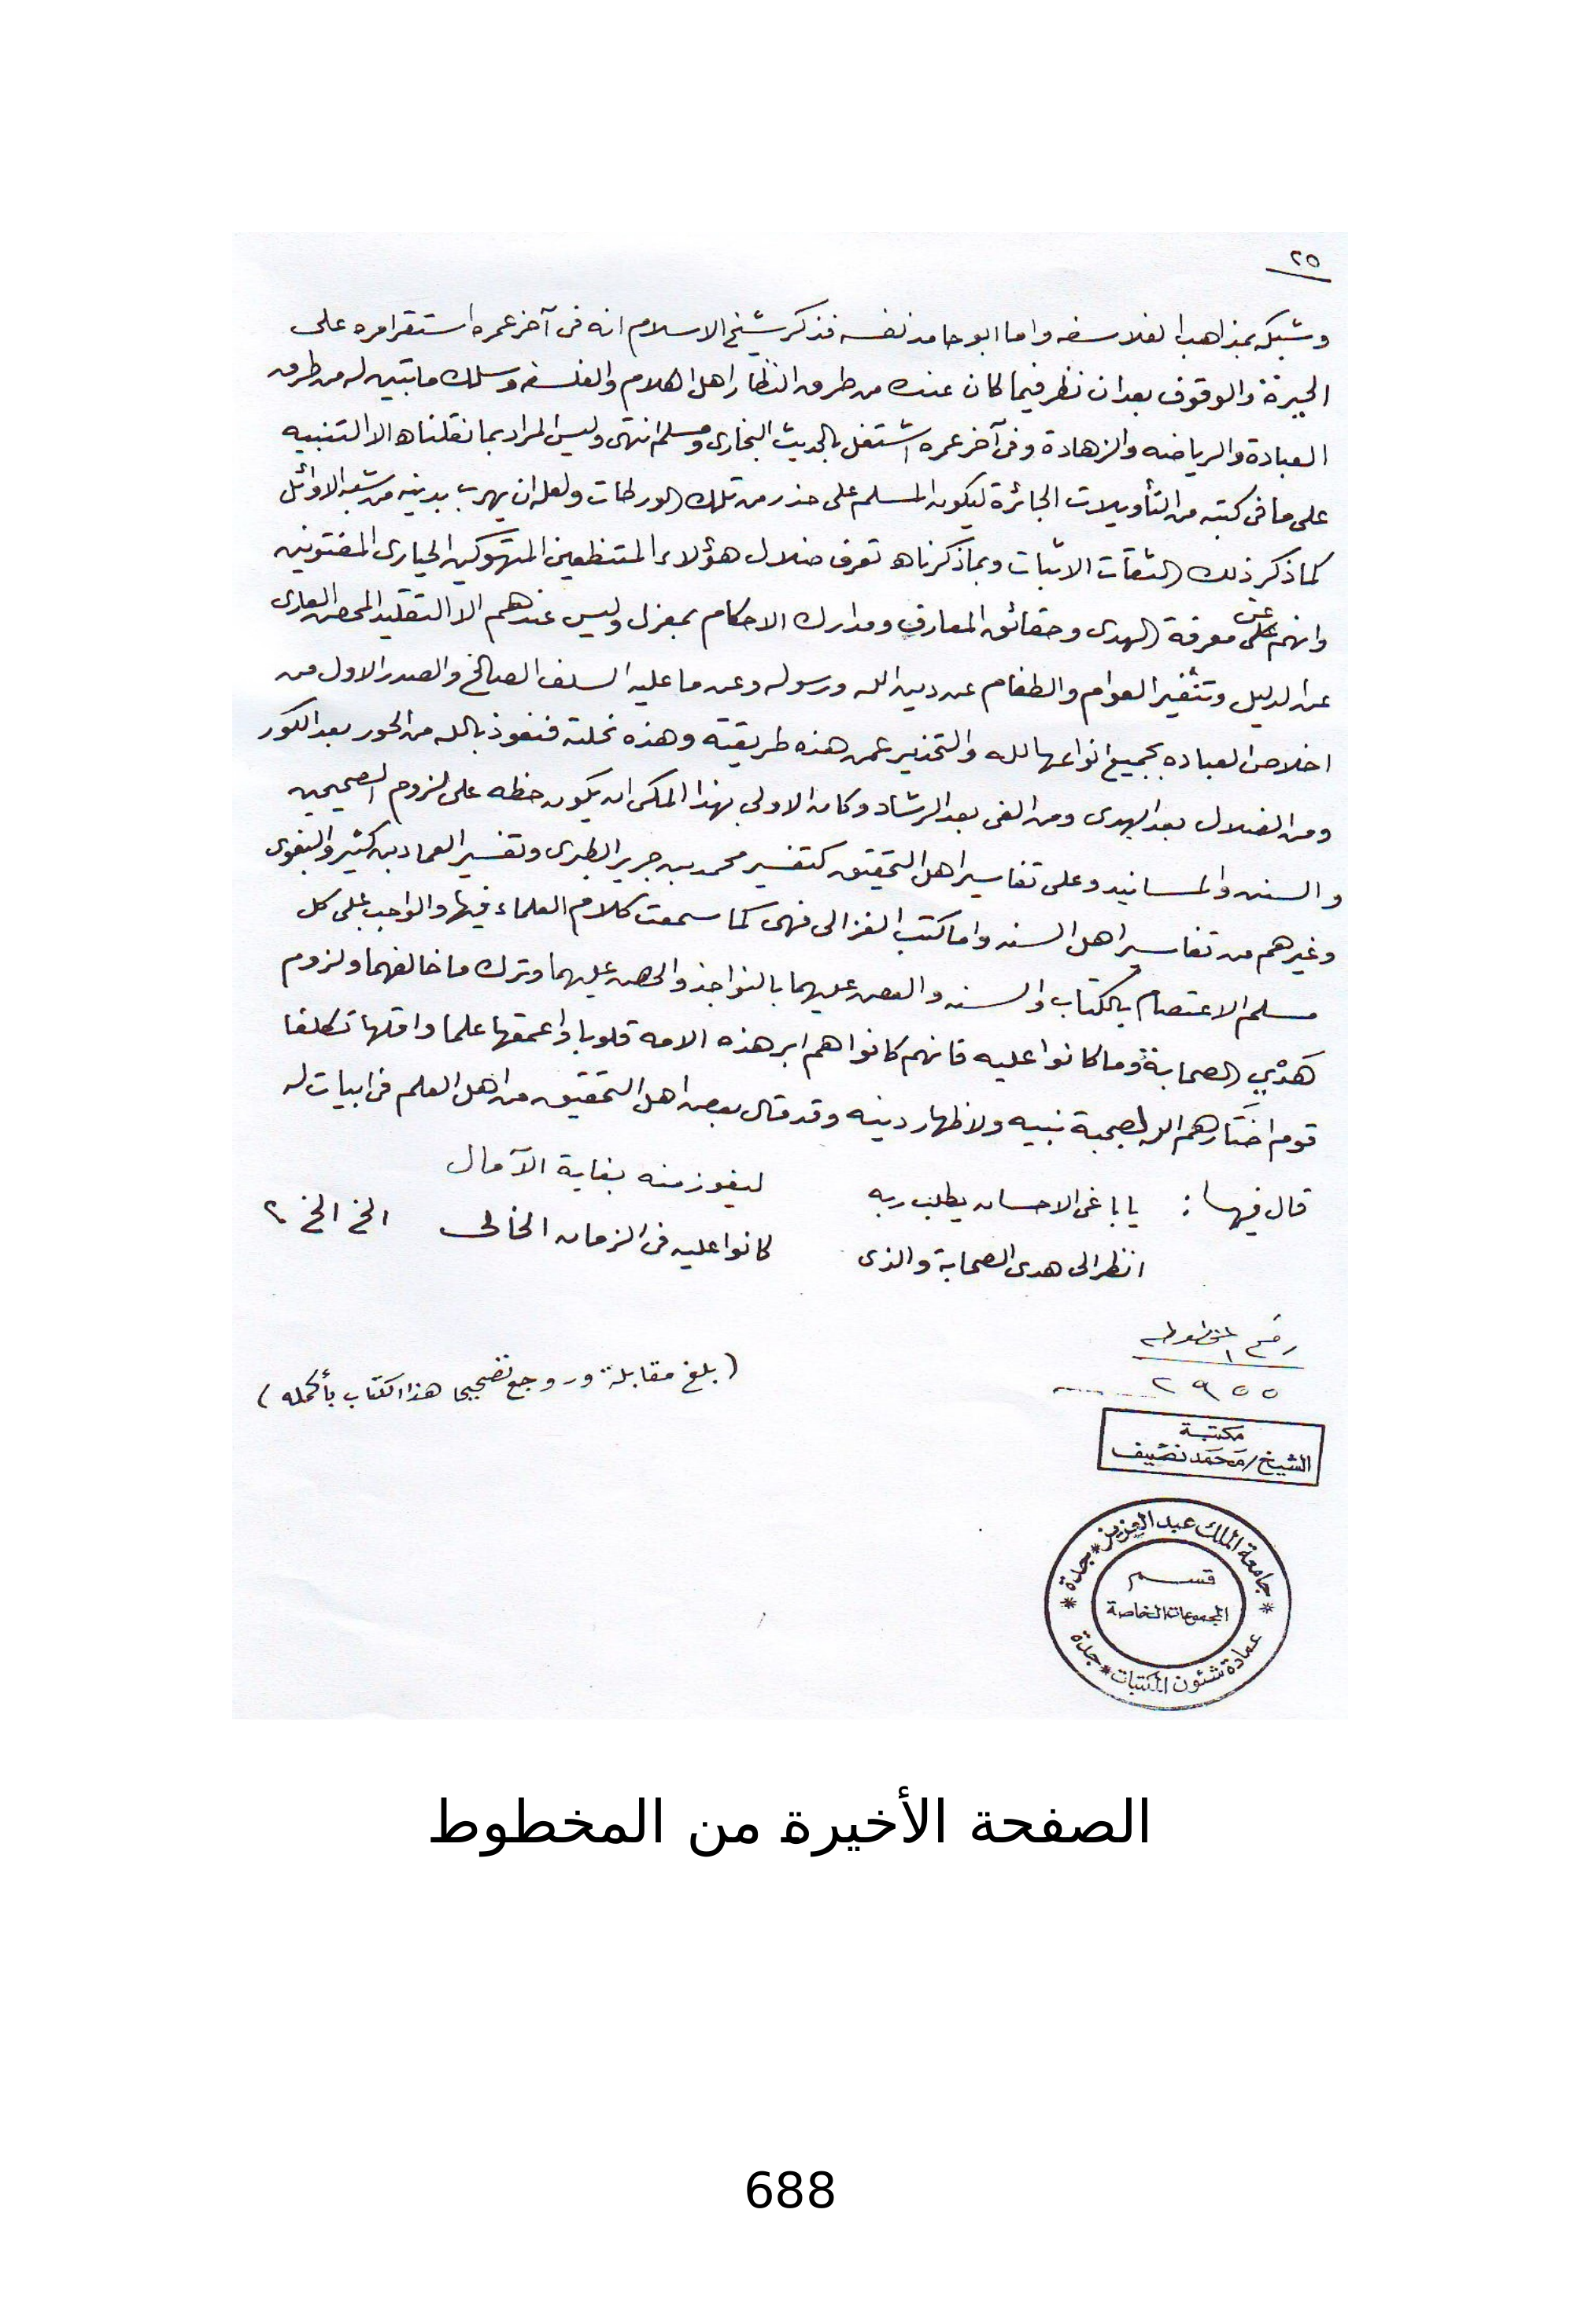 ٢٥
وشبكه بمذاهب الفلاسفه واما ابو حامد نفسه فذكر شيخ الاسلام انه فى آخر عمره استقر امره على
الحيرة والوقوف بعد ان نظر فيما كان عنده من طرق النظار اهل الكلام والفلسفه وسلك ما تبين له من طرق
العبادة والرياضه والزهادة وفى آخر عمره اشتغل بالحديث البخارى ومسلم انتهى وليس المراد بما نقلناه الا التنبيه
على ما فى كتبه من التأويلات الجائرة ليكون المسلم على حذر من تلك الورطات ولعله ان يهرب بدينه من شبه الاوائل
كما ذكر ذلك الثقات الاثبات وبما ذكرناه تعرف ضلال هؤلاء المتنطعين المتهوكين الحيارى المفتونين
وانهم عن معرفة الهدى وحقائق المعارف ومدارك الاحكام بمعزل وليس عندهم الا التقليد المحض العارى
عن الدليل وتنفير العوام والطغام عن دين الله ورسوله وعن ما عليه السلف الصالح والصدر الاول من
اخلاص العباده بجميع انواعها لله والتحذير عمن هذه طريقته وهذه نحلته فنعوذ بالله من الحور بعد الكور
ومن الضلال بعد الهدى ومن الغى بعد الرشاد وكان الاولى بهذا المكى ان يكون حظه على لزوم الصحيحين
والسنن والمسانيد وعلى تفاسير اهل التحقيق كتفسير محمد بن جرير الطبرى وتفسير العماد بن كثير والبغوى
وغيرهم من تفاسير اهل السنه واما كتب الغزالى فهى كما سمعت كلام العلماء فيها والواجب على كل
مسلم الاعتصام بالكتاب والسنه والعض عليهما بالنواجذ والحض عليهما وترك ما خالفهما ولزوم
هَدْيِ الصحابة وما كانوا عليه فانهم كانوا هم ابر هذه الامه قلوبا واعمقها علما واقلها تكلفا
قوم اختارهم الله لصحبة نبيه ولاظهار دينه وقد قال بعض اهل التحقيق من اهل العلم فى ابيات له
قال فيها : يا باغى الاحسان يطلب ربه ليفوز منه بغاية الآمال
انظر الى هدى الصحابة والذى كانوا عليه فى الزمان الخالى الخ الخ
رقم المخطوطه
٢٩٥٥
(بلغ مقابلة وروجع تصحيحا هذا الكتاب بأكمله)
مكتبة
الشيخ/محمد نصيف
جامعة الملك عبد العزيز * جدة
قسم
المجموعات الخاصة
عمادة شئون المكتبات * جدة
الصفحة الأخيرة من المخطوط
688